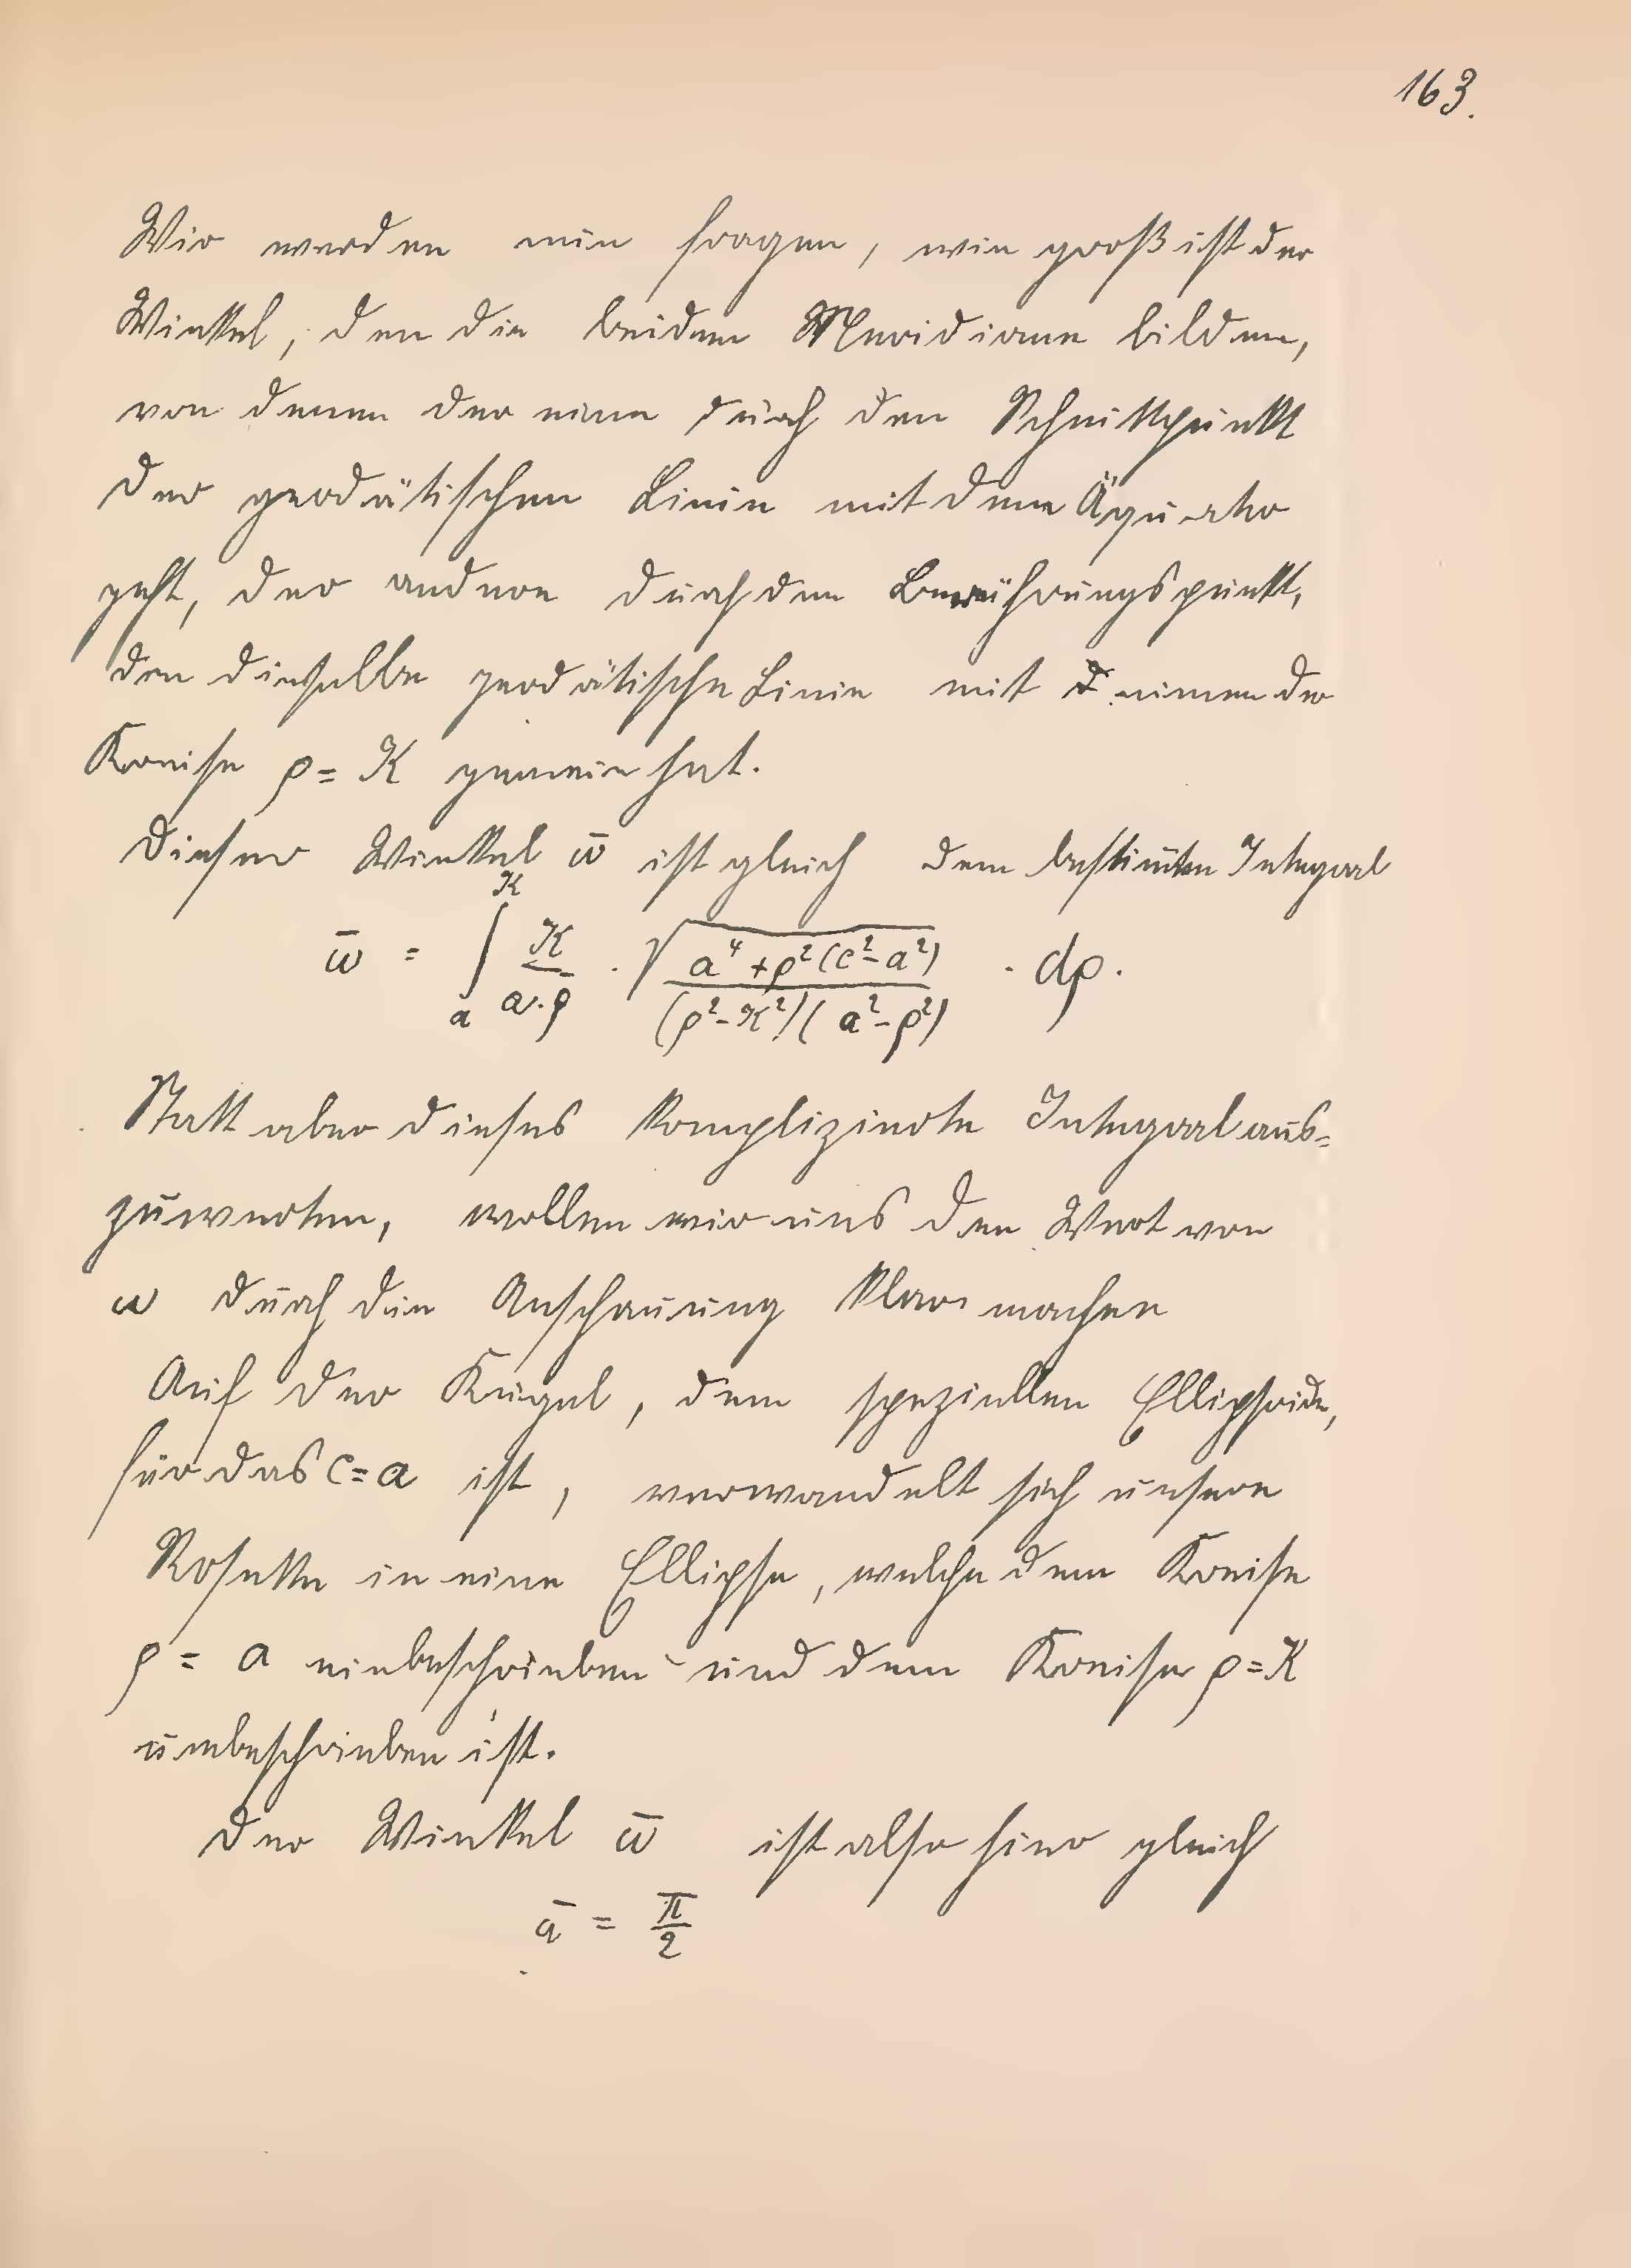 163.
Wir werden nun fragen, wie groß ist der
Winkel, den die beiden Meridiane bilden,
von denen der eine durch den Schnittpunkt
der geodätischen Linie mit dem Äquator
geht, der andere durch den Berührungspunkt,
den dieselbe geodätische Linie mit einem der
Kreise ρ = K gemein hat.
Dieser Winkel ω̄ ist gleich dem bestim̄ten Integral
ω̄ = ∫_a^K K/(a·ρ) · √((a⁴+ρ²(c²-a²))/((ρ²-K²)(a²-ρ²))) · dρ.
Statt aber dieses komplizierte Integral aus=
zuwerten, wollen wir uns den Wert von
ω durch die Anschauung klar machen
Auf der Kugel, dem speziellen Ellipsoide,
für das c=a ist, verwandelt sich unsere
Rosette in eine Ellipse, welche dem Kreise
ρ = a einbeschrieben und dem Kreise ρ=K
umbeschrieben ist.
Der Winkel ω̄ ist also hier gleich
ā = π/2